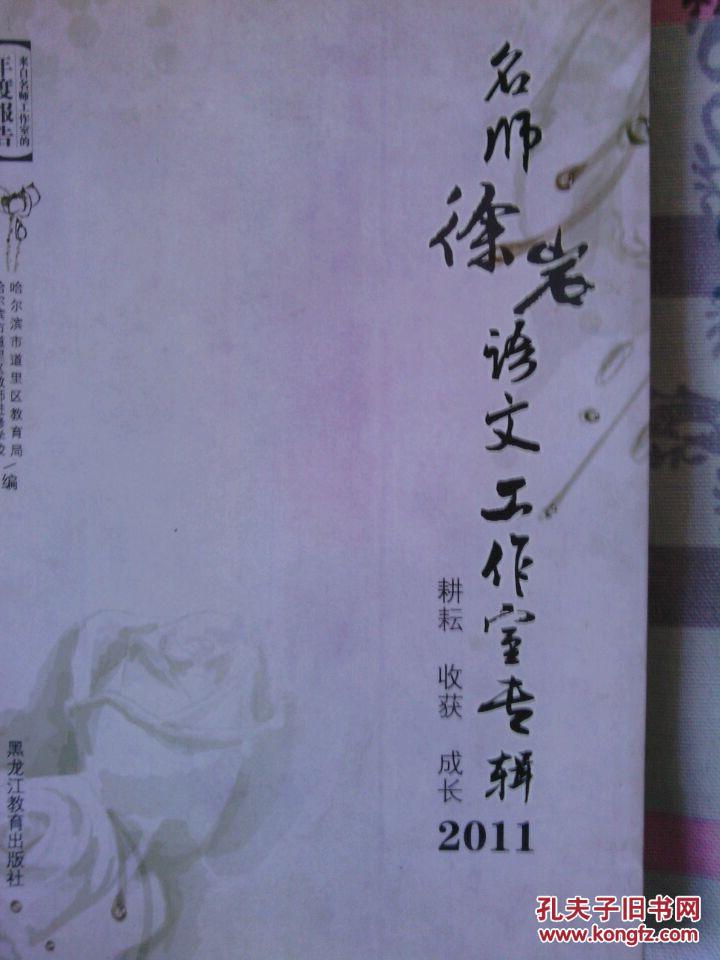 名师徐岩语文工作室专辑
耕耘 收获 成长
2011
来自名师工作室的
年度报告
哈尔滨市道里区教育局
哈尔滨市道里区教师进修学校
/编
黑龙江教育出版社
孔夫子旧书网
www.kongfz.com